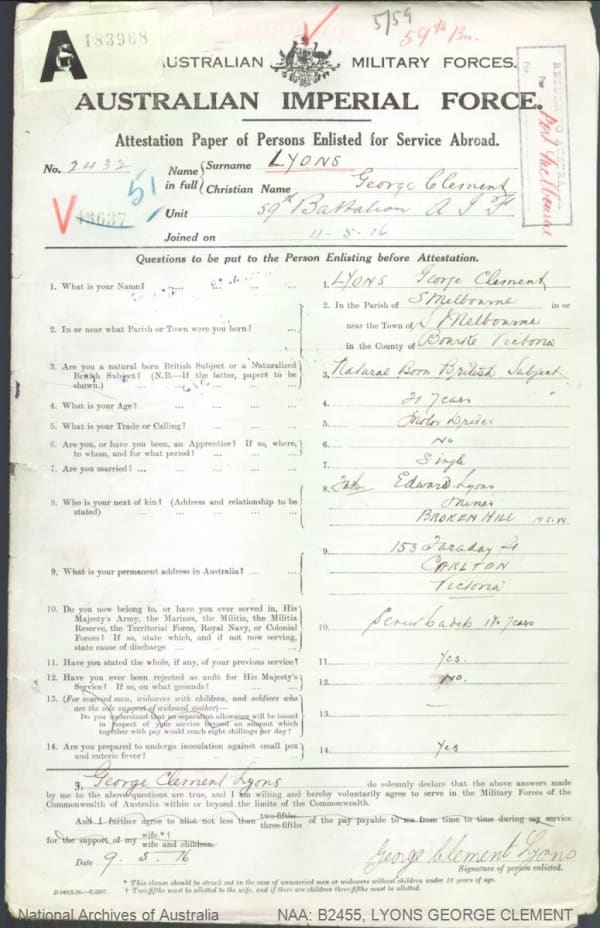 5/59
59th Bn.
183968
A
AUSTRALIAN MILITARY FORCES.
AUSTRALIAN IMPERIAL FORCE.
Port Melbourne
Attestation Paper of Persons Enlisted for Service Abroad.
No. 2432
Name in full
Surname LYONS
Christian Name George Clement
51
V
Unit 59th Battalion A I F
Joined on 11-5-16
Questions to be put to the Person Enlisting before Attestation.
1. What is your Name? ... ... ... 1. LYONS George Clement
2. In or near what Parish or Town were you born? ... 2. In the Parish of S Melbourne in or
near the Town of S Melbourne
in the County of Bourke Victoria
3. Are you a natural born British Subject or a Naturalized British Subject? (N.B.—If the latter, papers to be shown.) 3. Natural Born British Subject
4. What is your Age? 4. 21 years
5. What is your Trade or Calling? 5. Motor Driver
6. Are you, or have you been, an Apprentice? If so, where, to whom, and for what period? 6. No
7. Are you married? ... 7. Single
8. Who is your next of kin? (Address and relationship to be stated) 8. Father Edward Lyons
Miner
BROKEN HILL N.S.W
9. What is your permanent address in Australia? ... 9. 153 Faraday St
CARLTON
Victoria
10. Do you now belong to, or have you ever served in, His Majesty's Army, the Marines, the Militia, the Militia Reserve, the Territorial Force, Royal Navy, or Colonial Forces? If so, state which, and if not now serving, state cause of discharge 10. Senior Cadets years
11. Have you stated the whole, if any, of your previous service? 11. Yes.
12. Have you ever been rejected as unfit for His Majesty's Service? If so, on what grounds? 12. No.
13. (For married men, widowers with children, and soldiers who are the sole support of widowed mother)—
Do you understand that no separation allowance will be issued in respect of your service beyond an amount which together with pay would reach eight shillings per day? 13. —
14. Are you prepared to undergo inoculation against small pox and enteric fever? 14. Yes
I, George Clement Lyons do solemnly declare that the above answers made
by me to the above questions are true, and I am willing and hereby voluntarily agree to serve in the Military Forces of the
Commonwealth of Australia within or beyond the limits of the Commonwealth.
And I further agree to allot not less than two-fifths three-fifths of the pay payable to me from time to time during my service
for the support of my wife.*† wife and children.
Date 9. 5. 16
George Clement Lyons
Signature of person enlisted.
* This clause should be struck out in the case of unmarried men or widowers without children under 18 years of age.
† Two-fifths must be allotted to the wife, and if there are children three-fifths must be allotted.
National Archives of Australia NAA: B2455, LYONS GEORGE CLEMENT